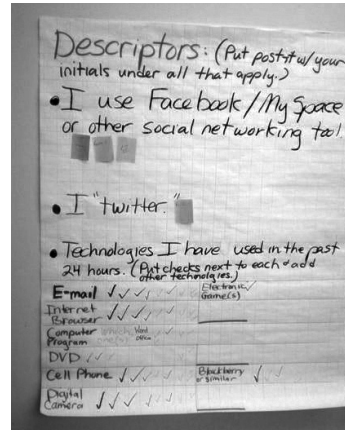 Descriptors: (Put post-it w/ your
initials under all that apply.)
• I use Facebook/My Space
or other social networking tool
• I "twitter."
• Technologies I have used in the past
24 hours. (Put checks next to each & add
other technologies.)
E-mail
Electronic
Game(s)
Internet
Browser
Computer
Program
Word
DVD
Cell Phone
Blackberry
or similar
Digital
Camera